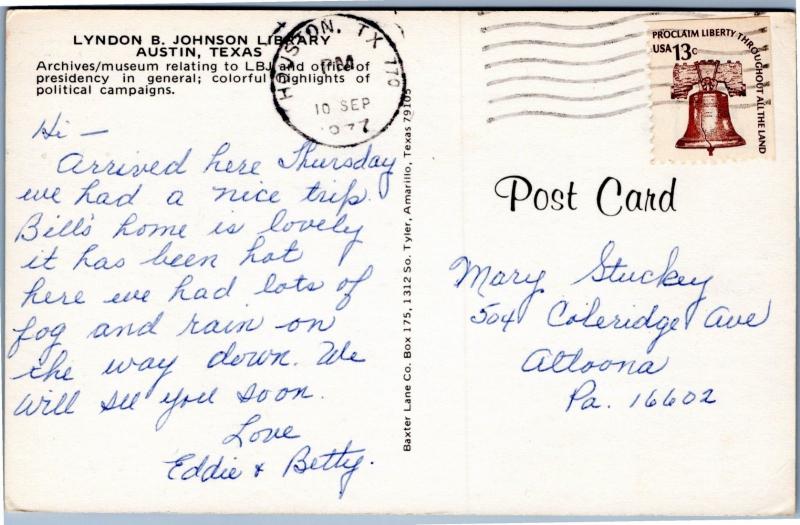 LYNDON B. JOHNSON LIBRARY
AUSTIN, TEXAS
Archives/museum relating to LBJ and office of
presidency in general; colorful highlights of
political campaigns.
HOUSTON, TX 770
PM
10 SEP
1977
PROCLAIM LIBERTY THROUGHOUT ALL THE LAND
USA 13c
Hi —
Arrived here Thursday
we had a nice trip.
Bill's home is lovely
it has been hot
here we had lots of
fog and rain on
the way down. We
will see you soon.
Love
Eddie & Betty.
Baxter Lane Co. Box 175, 1312 So. Tyler, Amarillo, Texas 79105
Post Card
Mary Stuckey
504 Coleridge Ave
Altoona
Pa. 16602